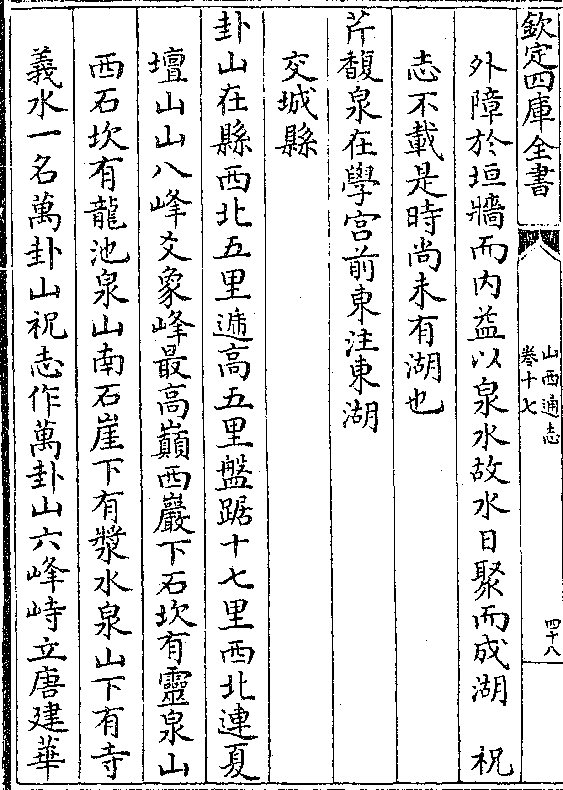 欽定四庫全書
山西通志
卷十七
四十八
外障於垣牆而内益以泉水故水日聚而成湖　祝
志不載是時尚未有湖也
芹馥泉在學宫前東注東湖
交城縣
卦山在縣西北五里遞高五里盤踞十七里西北連夏
壇山山八峰爻象峰最高巔西巖下石坎有靈泉山
西石坎有龍池泉山南石崖下有漿水泉山下有寺
義水一名萬卦山祝志作萬卦山六峰峙立唐建華